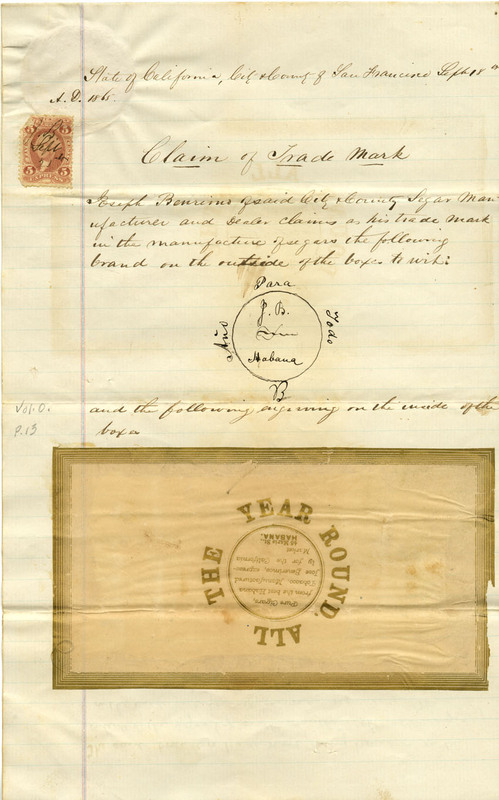 State of California, City & County of San Francisco Sept 18th
A.D. 1865.
5 5
EXPRESS
5 5
Claim of Trade Mark
Joseph of said City & County Segar Man-
ufacturer and Dealer claims as his trade mark
in the manufacture of segars the following
brand on the outside of the boxes to wit:
Para
Año
Todo
J. B.
Habana
B
Vol. 0.
P. 13
and the following engraving on the inside of the
boxes
ALL THE YEAR ROUND.
Pure Cigars,
From the best Habana
Tobacco, Manufactured
by for the California
Market
HABANA.